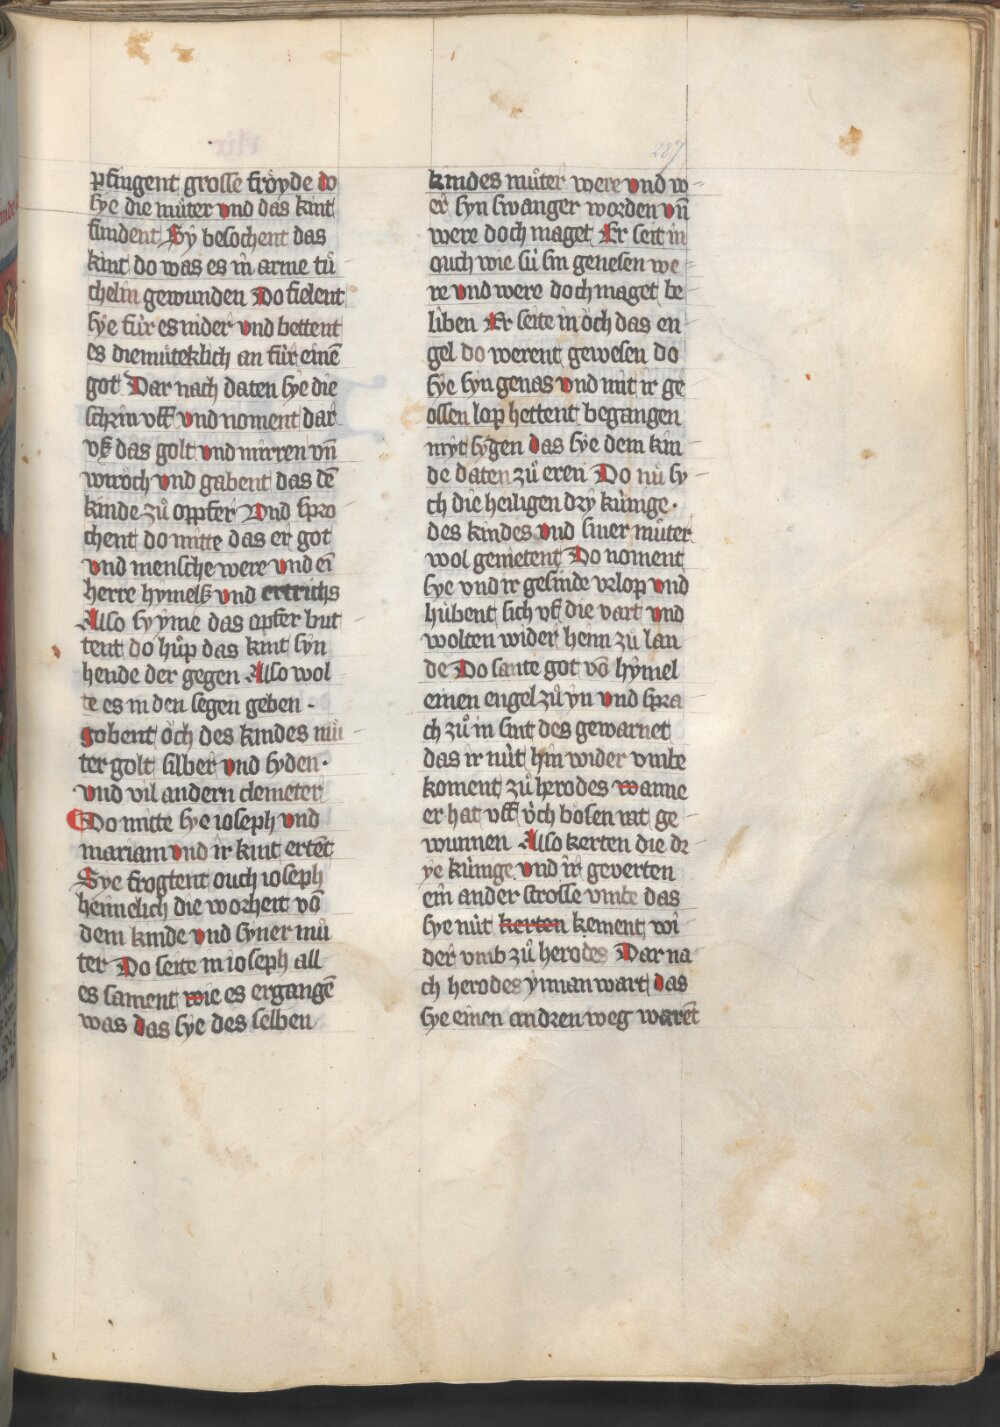 287
pfingent grosse froͤyde do
sye die muͦter vnd das kint
findent Sÿ besochent das
kint do was es in arme tuͤ
chelin gewunden Do fielent
sye fuͤr es nider vnd bettent
es diemuͤteklich an fuͤr einē
got Dar nach daten sye die
schrin vff vnd noment dar
vß das golt vnd mirren vn̄
wiroch vnd gabent das dē
kinde zuͦ oppfer Vnd spro
chent do mitte das er got
vnd mensche were vnd ei
herre hymelß vnd ertrichs
Also sy yme das opfer but
tent do huͦp das kint syn
hende der gegen Also wol
te es in den segen geben ·
gobent oͤch des kindes muͦ
ter golt silber vnd syden ·
vnd vil andern clemeter
Do mitte sye ioseph vnd
mariam vnd ir kint ertēt
Sye frogtent ouch ioseph
heimelich die worheit vō
dem kinde vnd syner muͦ
ter Do seite in ioseph all
es sament wie es ergangē
was das sye des selben
kindes muͦter were vnd w
er syn swanger worden vn̄
were doch maget Er seit in
ouch wie suͤ sin genesen we
re vnd were doch maget be
liben Er seite in och das en
gel do werent gewesen do
sye syn genas vnd mit ir ge
ossen lop hettent begangen
myt sygen das sye dem kin
de daten zuͦ eren Do nuͦ sy
ch die heiligen dry kuͤnige ·
des kindes vnd siner muͦter
wol gemetent Do noment
sye vnd ir gesinde vrlop vnd
huͦbent sich vf die vart vnd
wolten wider heim zuͦ lan
de Do sante got vō hymel
einen engel zuͦ yn vnd spra
ch zuͦ in sint des gewarnet
das ir nuͤt hin wider vmbe
koment zuͦ herodes wanne
er hat vff uͤch bosen rat ge
wunnen Also kerten die dr
ye kuͤnige vnd ir geverten
ein ander strosse vmbe das
sye nuͤt kerten kement wi
der vmb zuͦ herodes Dar na
ch herodes ynnan wart das
sye einen andren weg warēt